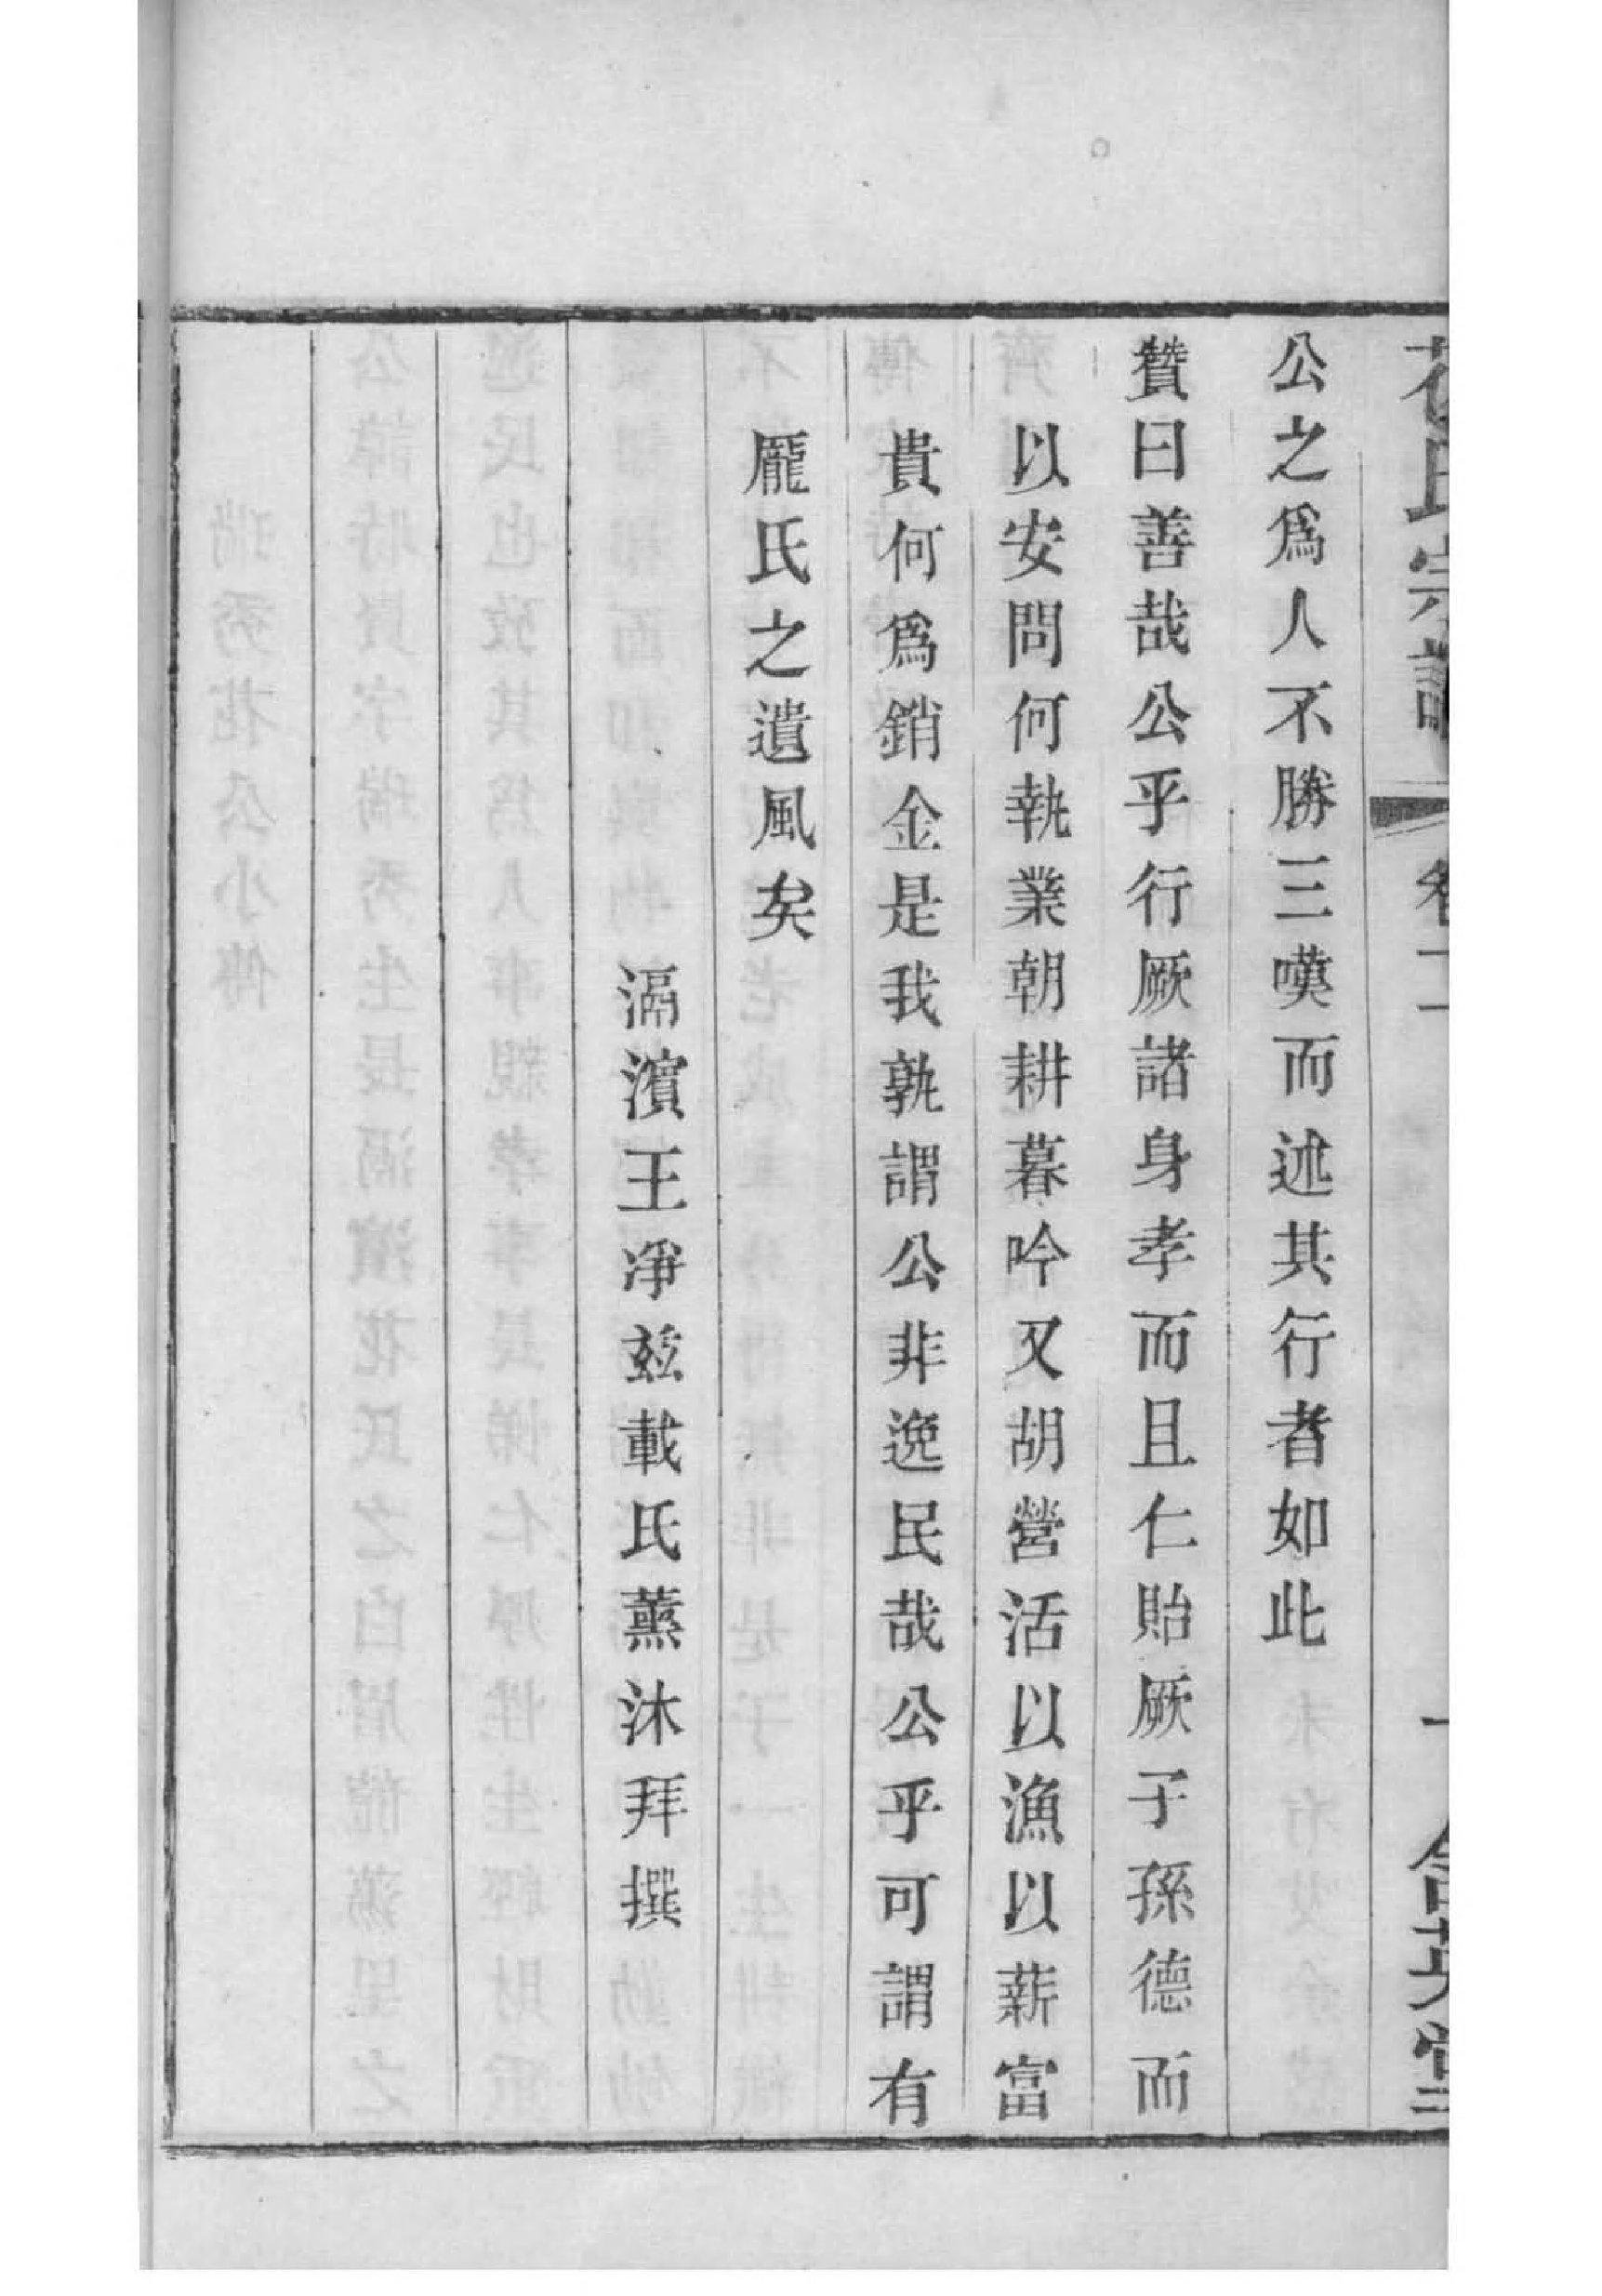 花氏宗譜 卷二 合英堂
公之爲人不勝三嘆而述其行者如此
贊曰善哉公乎行厥諸身孝而且仁貽厥子孫德而
以安問何執業朝耕暮吟又胡營活以漁以薪富
貴何爲銷金是我孰謂公非逸民哉公乎可謂有
龐氏之遺風矣
滆濱王凈玆載氏薰沐拜撰